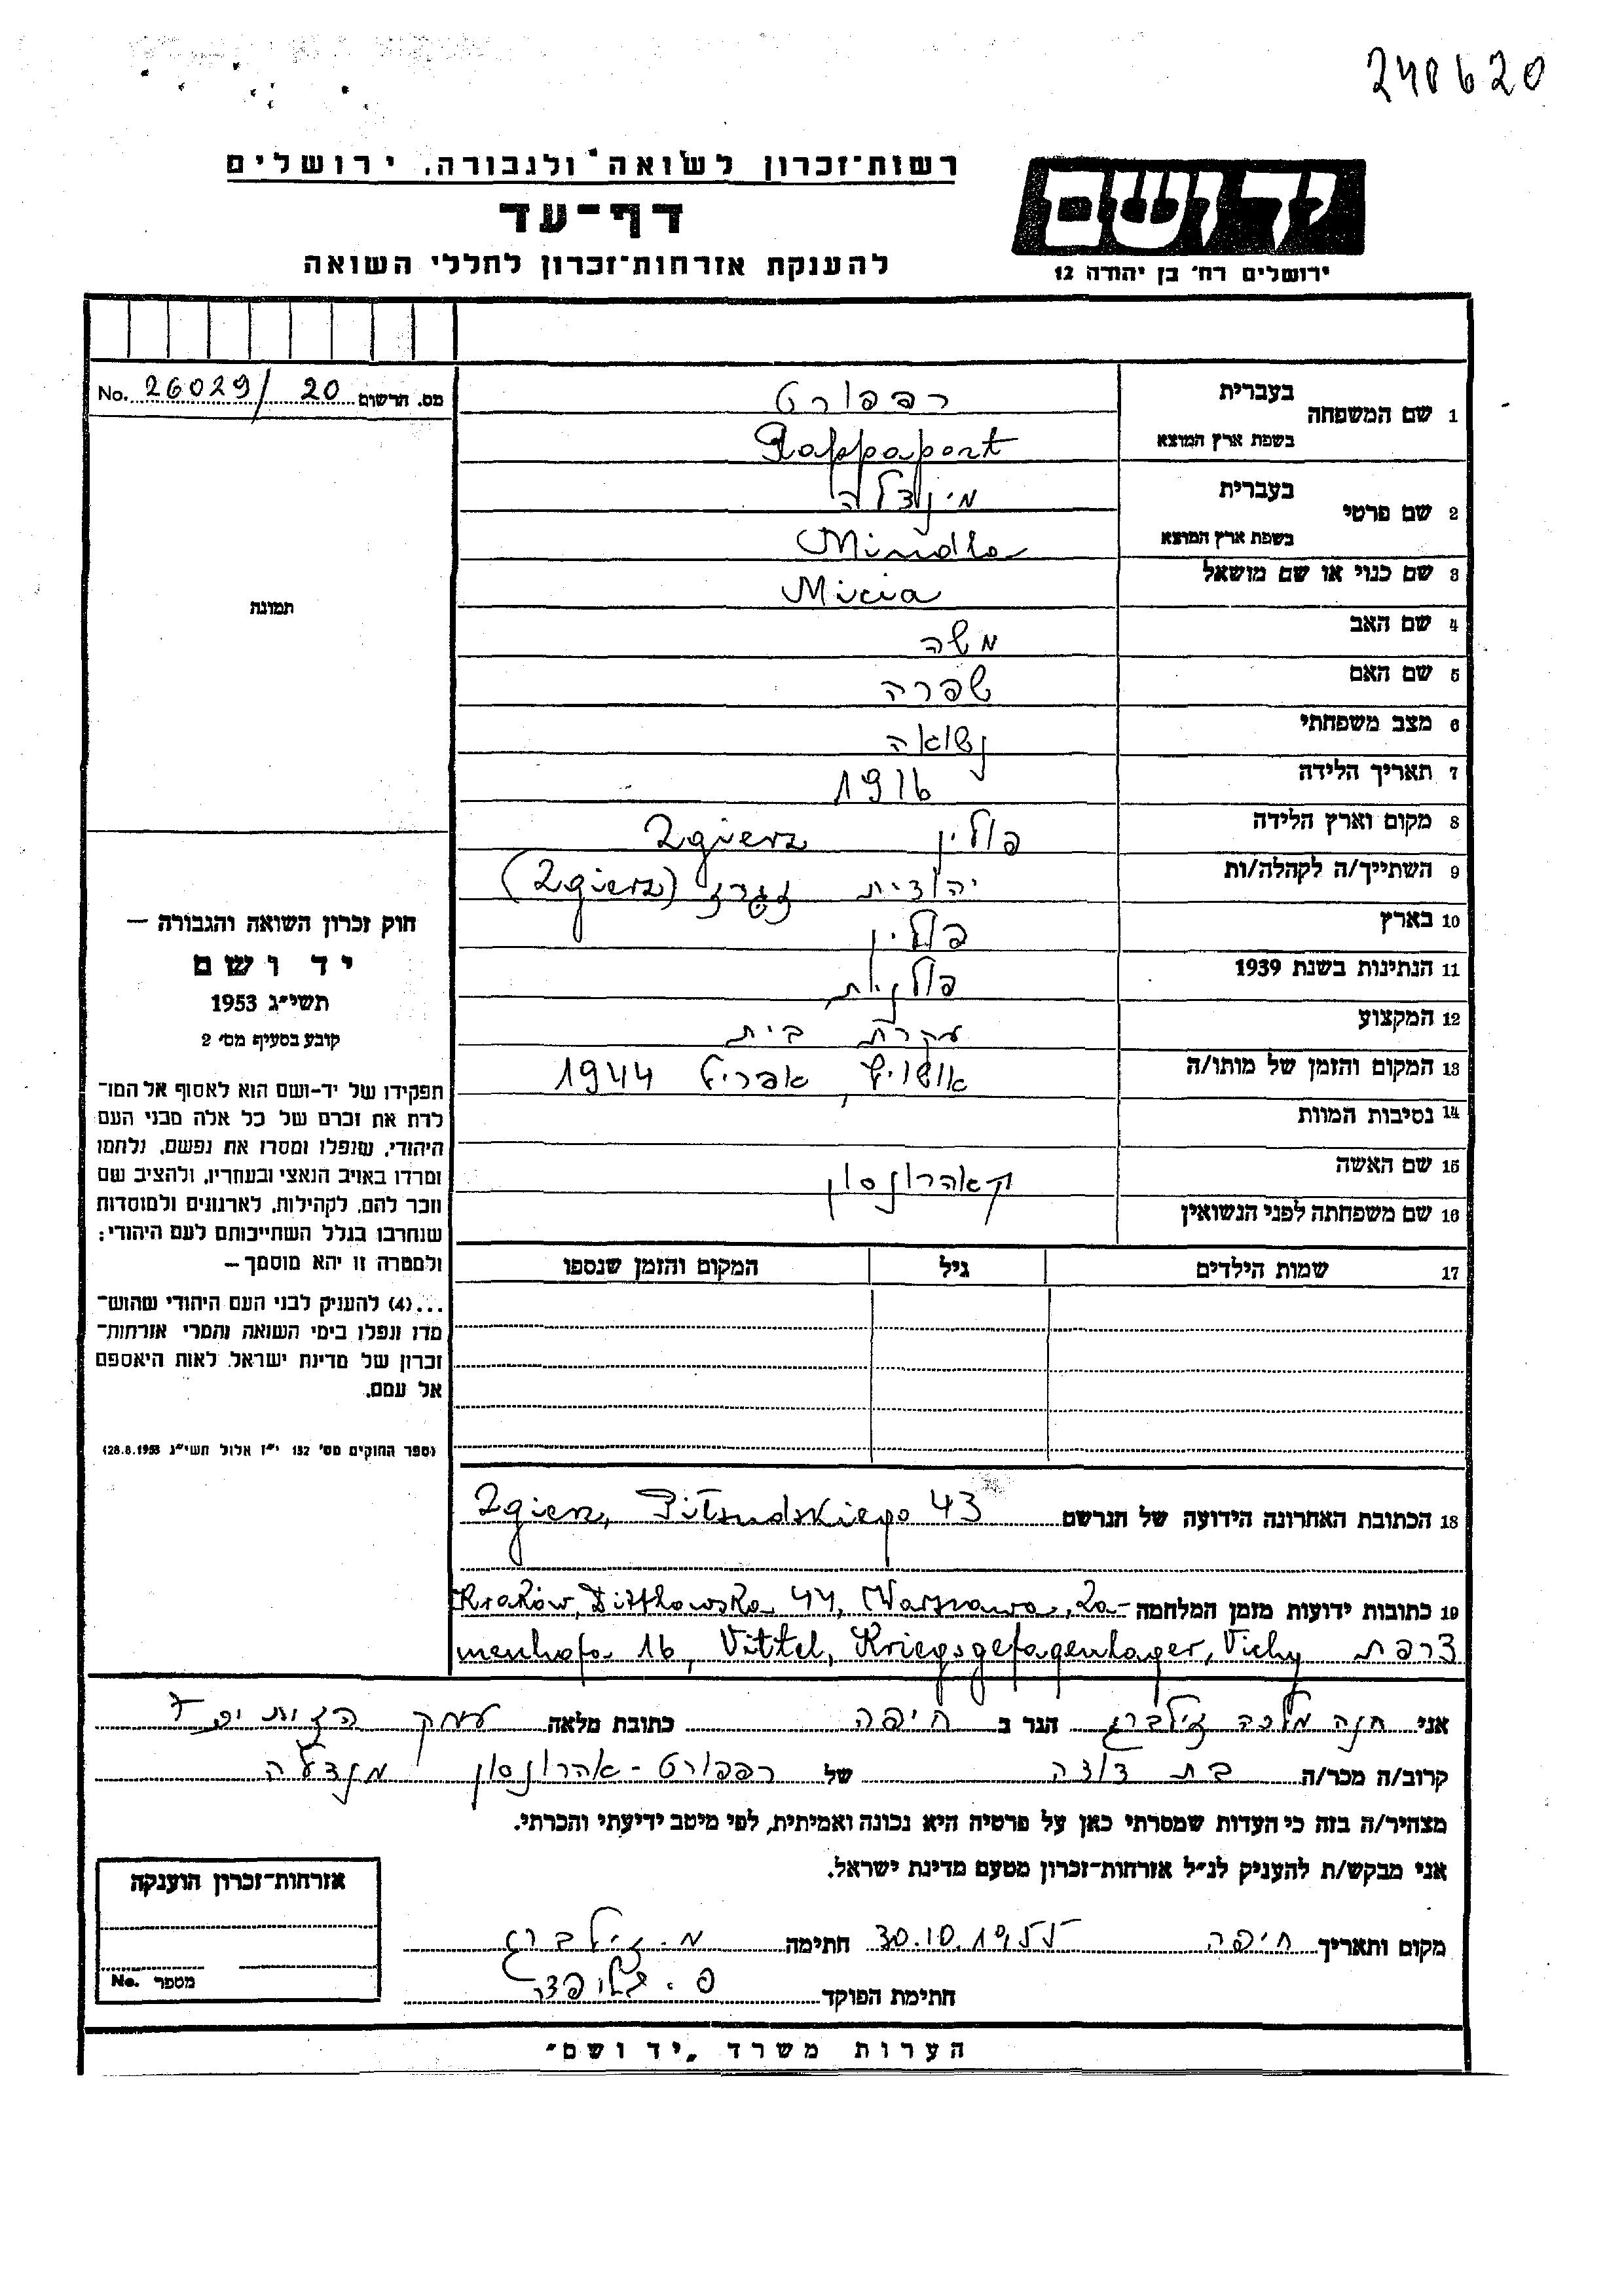 248620
רשות־זכרון לשואה ולגבורה, ירושלים
דף־עד
להענקת אזרחות־זכרון לחללי השואה
יד ושם
ירושלים רח' בן יהודה 12
מס. הרשום 20 /26029 No.
1 שם המשפחה
בעברית רפפורט
בשפת ארץ המוצא Rappaport
2 שם פרטי
בעברית מינדלה
בשפת ארץ המוצא Mindla
3 שם כנוי או שם מושאל Micia
4 שם האב משה
5 שם האם שפרה
6 מצב משפחתי נשואה
7 תאריך הלידה 1916
8 מקום וארץ הלידה פולין Zgierz
9 השתייך/ה לקהלה/ות יהודית זגרז (Zgierz)
10 בארץ פולין
11 הנתינות בשנת 1939 פולנית
12 המקצוע עקרת בית
13 המקום והזמן של מותו/ה אושויץ, אפריל 1944
14 נסיבות המוות
15 שם האשה
16 שם משפחתה לפני הנשואין אהרונסון
17 שמות הילדים גיל המקום והזמן שנספו
תמונה
חוק זכרון השואה והגבורה —
יד ושם
תשי״ג 1953
קובע בסעיף מס׳ 2
תפקידו של יד-ושם הוא לאסוף אל המו־
לדת את זכרם של כל אלה מבני העם
היהודי, שנפלו ומסרו את נפשם, נלחמו
ומרדו באויב הנאצי ובעוזריו, ולהציב שם
וזכר להם, לקהילות, לארגונים ולמוסדות
שנחרבו בגלל השתייכותם לעם היהודי;
ולמטרה זו יהא מוסמך —
...(4) להעניק לבני העם היהודי שהוש־
מדו ונפלו בימי השואה והמרי אזרחות־
זכרון של מדינת ישראל לאות היאספם
אל עמם.
(ספר החוקים מס׳ 132 י״ז אלול תשי״ג 28.8.1953)
18 הכתובת האחרונה הידועה של הנרשם Zgierz, Piłsudskiego 43
19 כתובות ידועות מזמן המלחמה Kraków, Dittlowska 44, Warszawa, Za-
menhofa 16, Vittel, Kriegsgefagenlager, Vichy צרפת
אני חנה מלכה זילברג הגר ב חיפה כתובת מלאה עמק הזתים
קרוב/ה מכר/ה בת דודה של רפפורט - אהרונסון מנדלה
מצהיר/ה בזה כי העדות שמסרתי כאן על פרטיה היא נכונה ואמיתית, לפי מיטב ידיעתי והכרתי.
אני מבקש/ת להעניק לנ״ל אזרחות־זכרון מטעם מדינת ישראל.
מקום ותאריך חיפה 30.10.1955 חתימה מ. זילברג
חתימת הפוקד
אזרחות־זכרון הוענקה
מספר No.
הערות משרד „יד ושם״